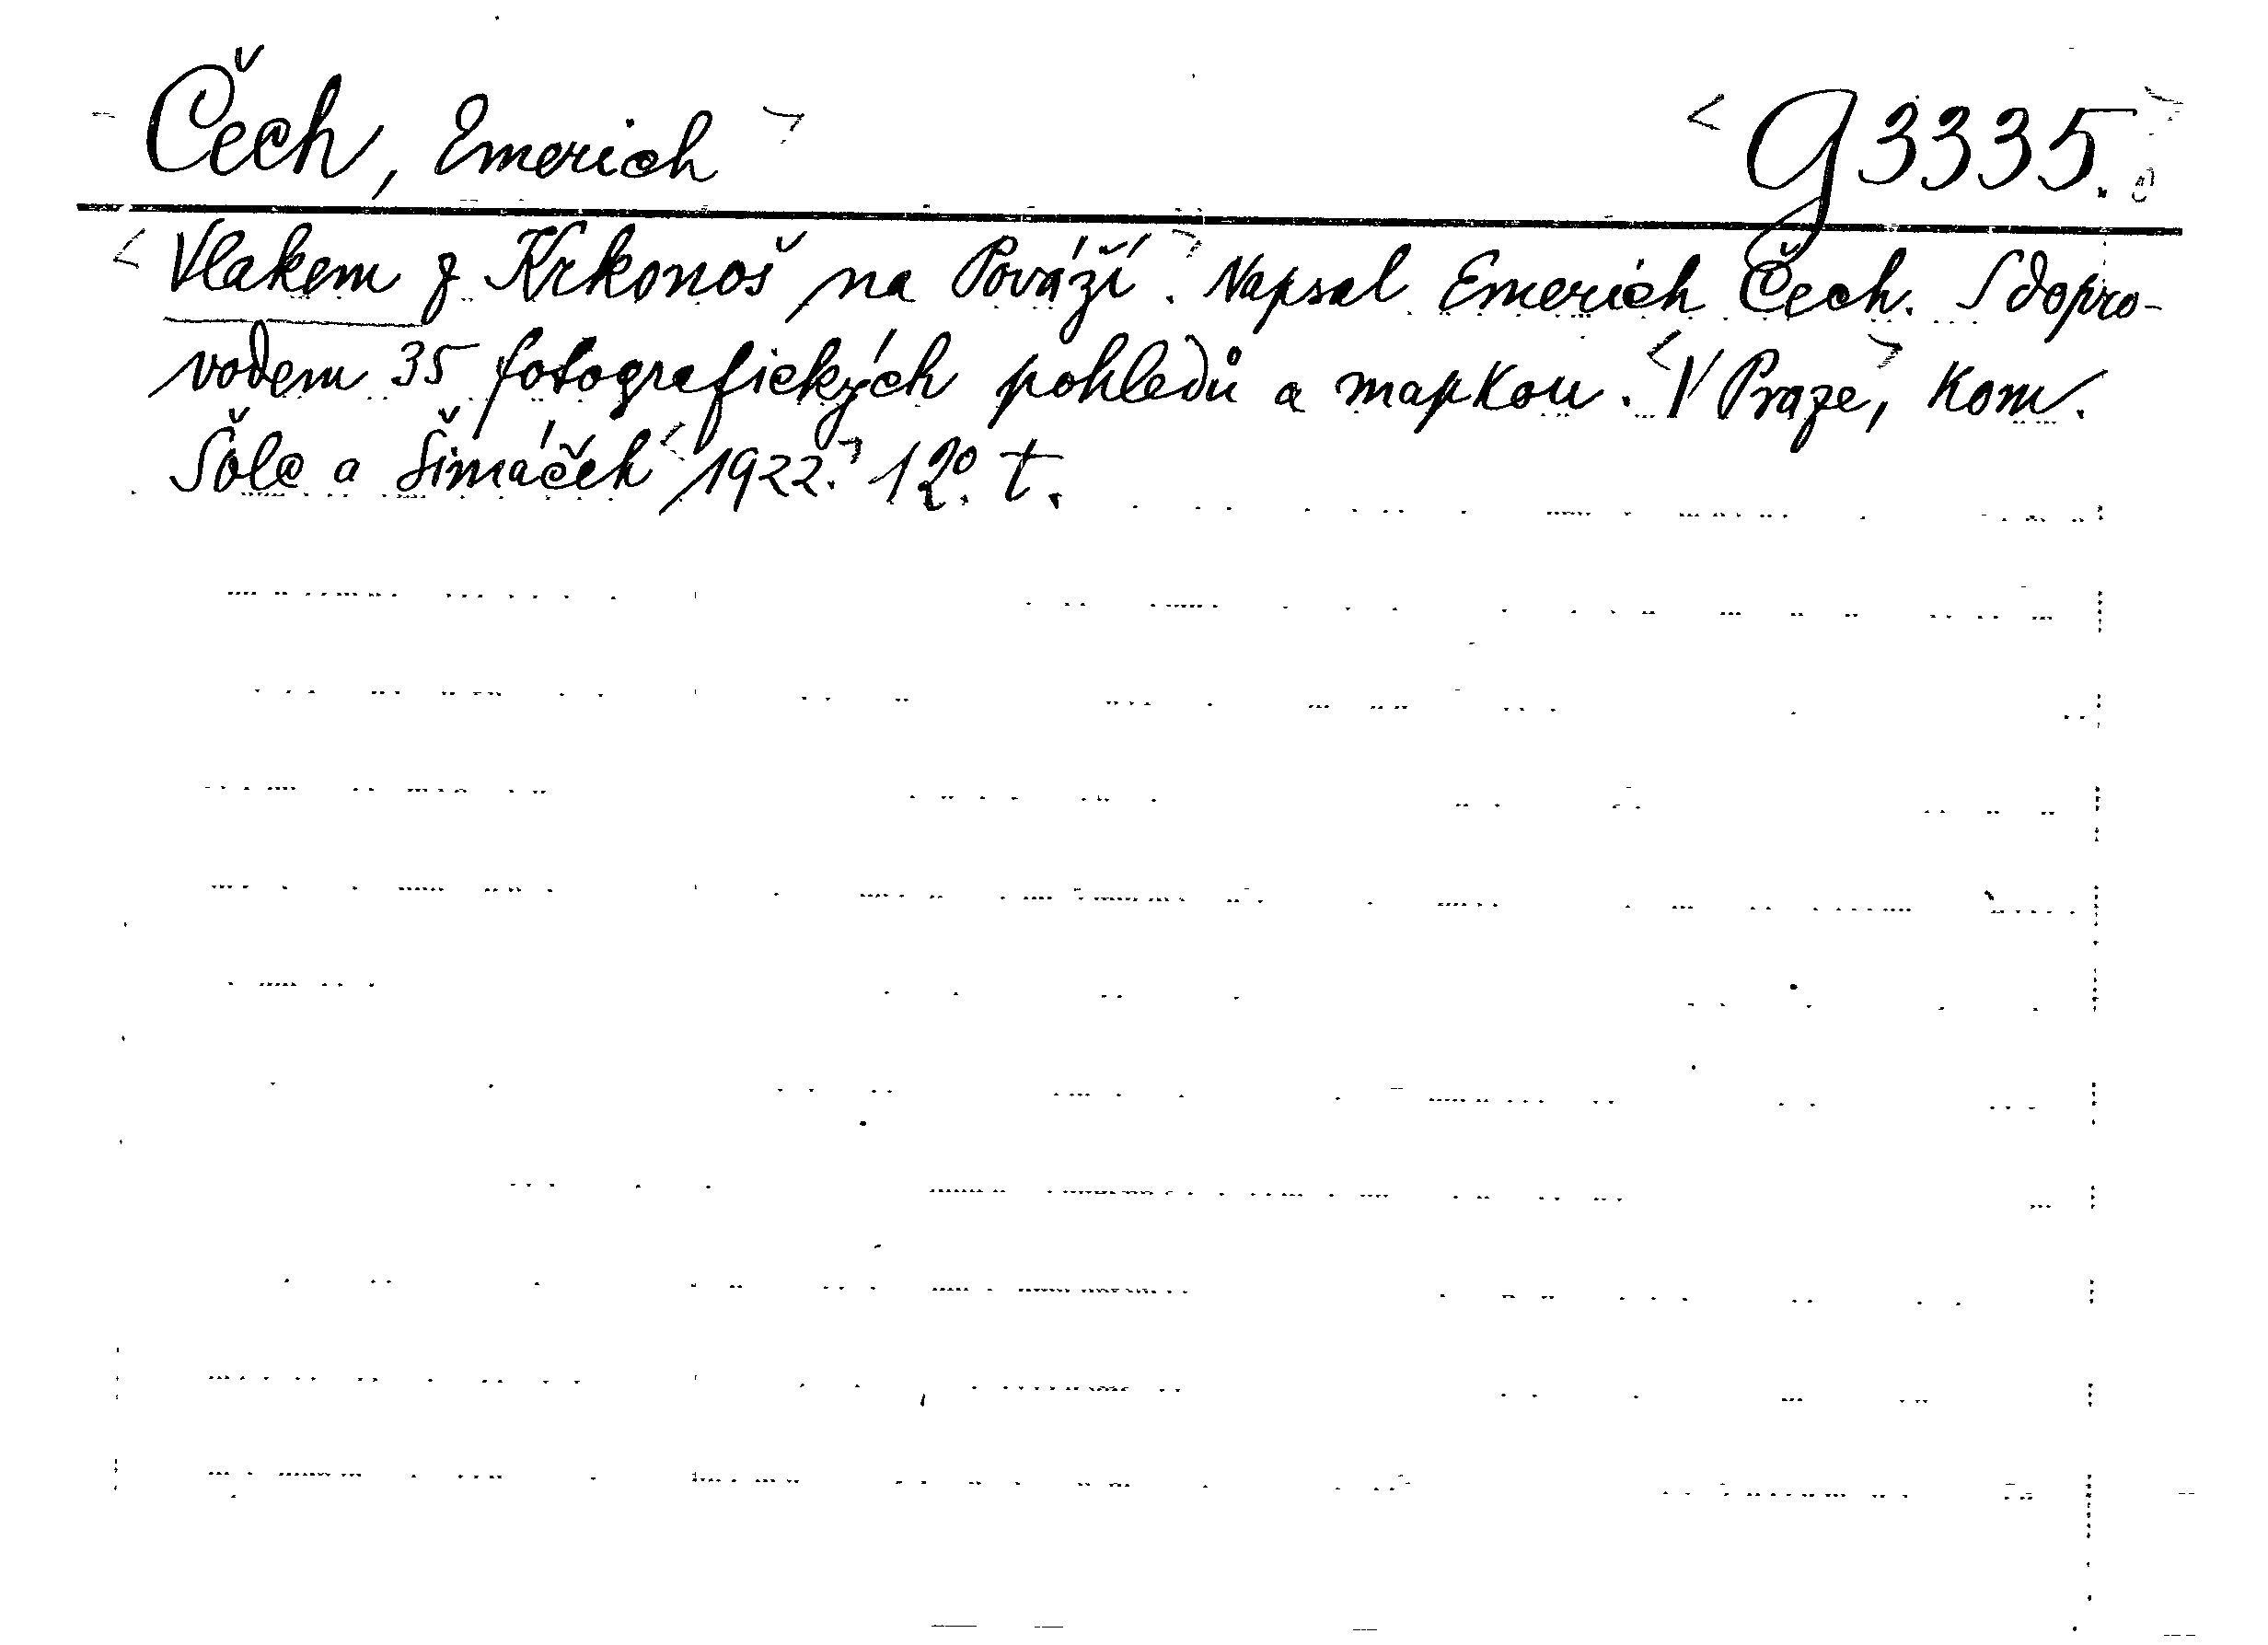 Čech, Emerich G 3335.
Vlakem z Krkonoš na Pováží. Napsal Emerich Čech. S dopro-
vodem 35 fotografických pohledů a mapkou. V Praze, Kom.
Šolc a Šimáček 1922. 12°. t.